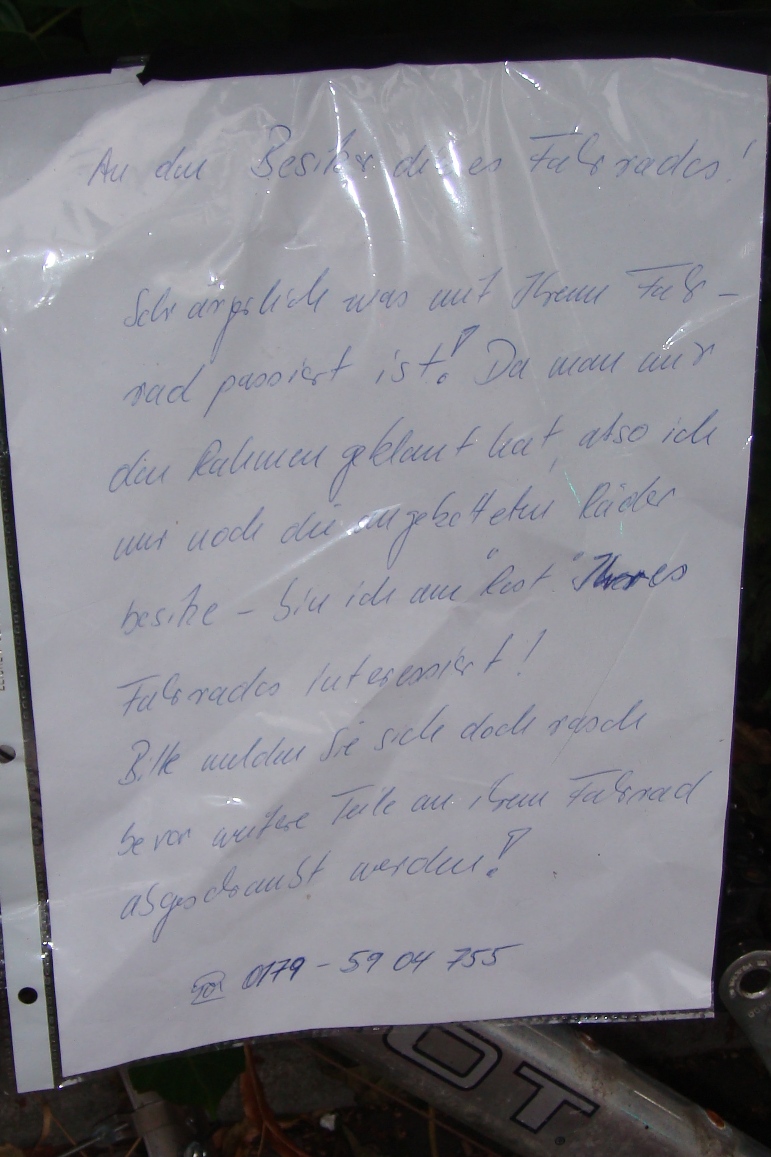 An den Besitzer dieses Fahrrades!
Sehr ärgerlich was mit Ihrem Fahr-
rad passiert ist! Da man mir
den Rahmen geklaut hat, also ich
nur noch die angeketteten Räder
besitze – bin ich am "Rest" Ihres
Fahrrades interessiert!
Bitte melden Sie sich doch rasch
bevor weitere Teile an ihrem Fahrrad
abgeschraubt werden!
☎ 0179 - 59 04 755
OT